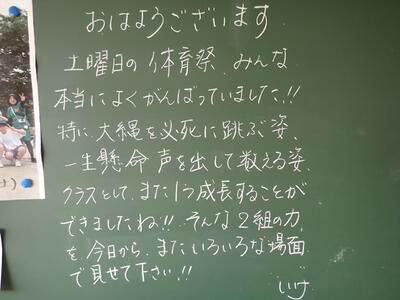 おはようございます
土曜日の体育祭、みんな
本当によくがんばっていました!!
特に、大縄を必死に跳ぶ姿、
一生懸命声を出して数える姿、
クラスとして、また1つ成長することが
できましたね!! そんな2組の力
を、今日から、またいろいろな場面
で見せて下さい!!
いけ